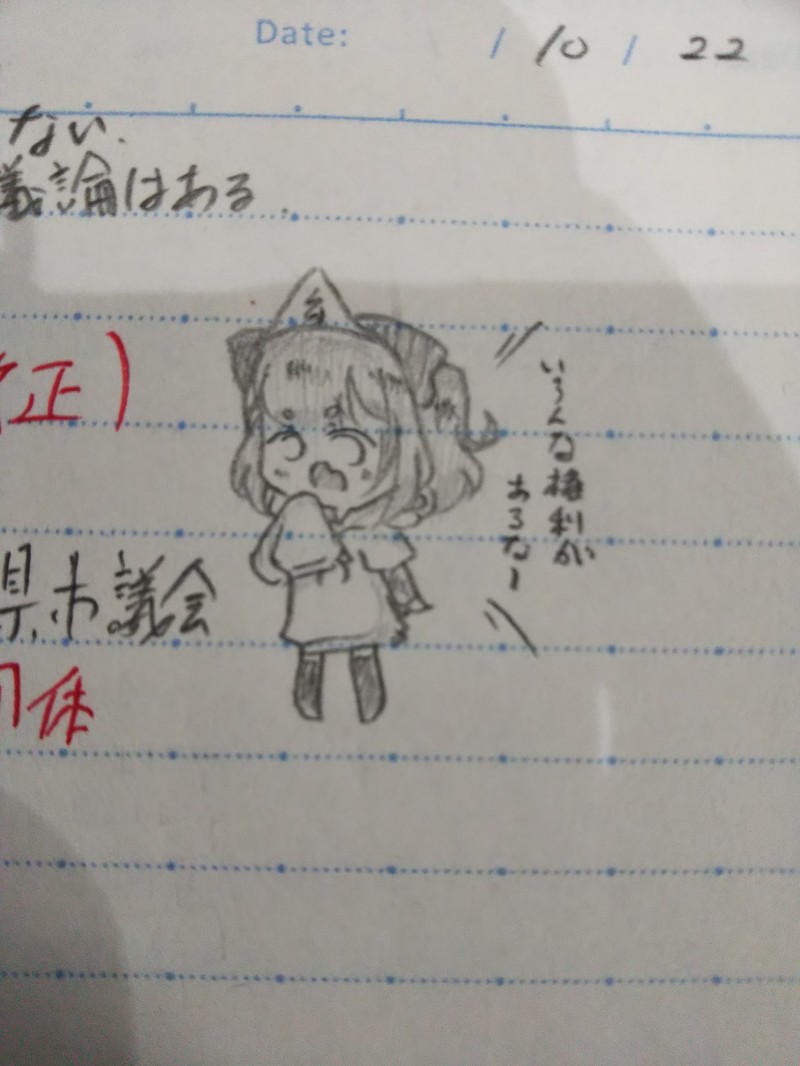 Date: / 10 / 22
ない.
議論はある.
正)
いろんな権利が
あるなー
県市議会
団体